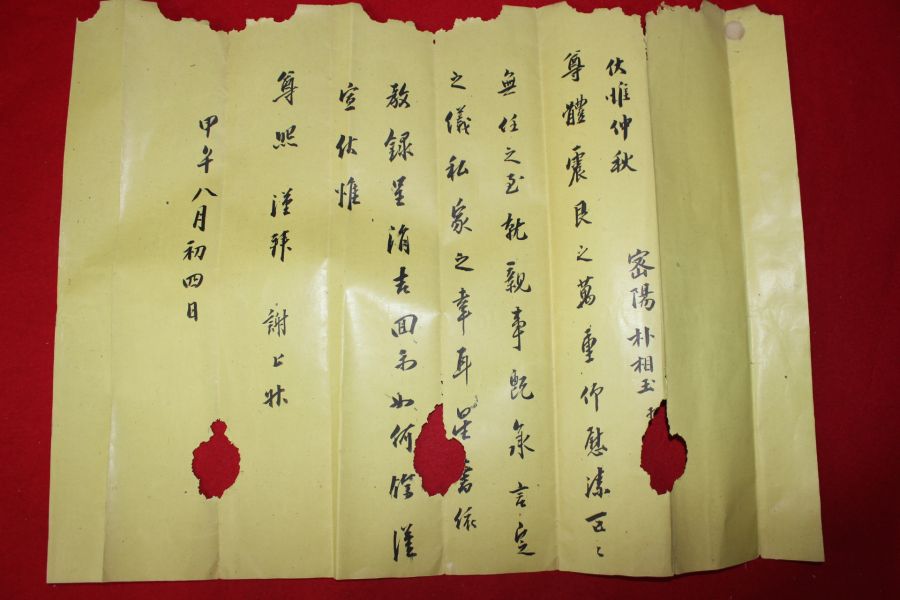 密陽朴相玉
伏惟仲秋
尊體震艮之萬重仰慰溸區〻
無任之至就親事旣承言定
之儀私家之幸耳星書依
教錄呈涓吉回示如何餘謹
宣伏惟
尊照 謹拜 謝上狀
甲午八月初四日